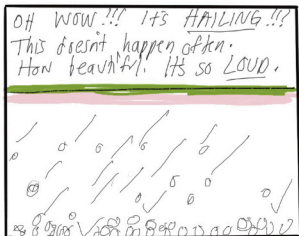 OH WOW!!! Its HAILING!!!
This doesn't happen often.
How beautiful. Its so LOUD.